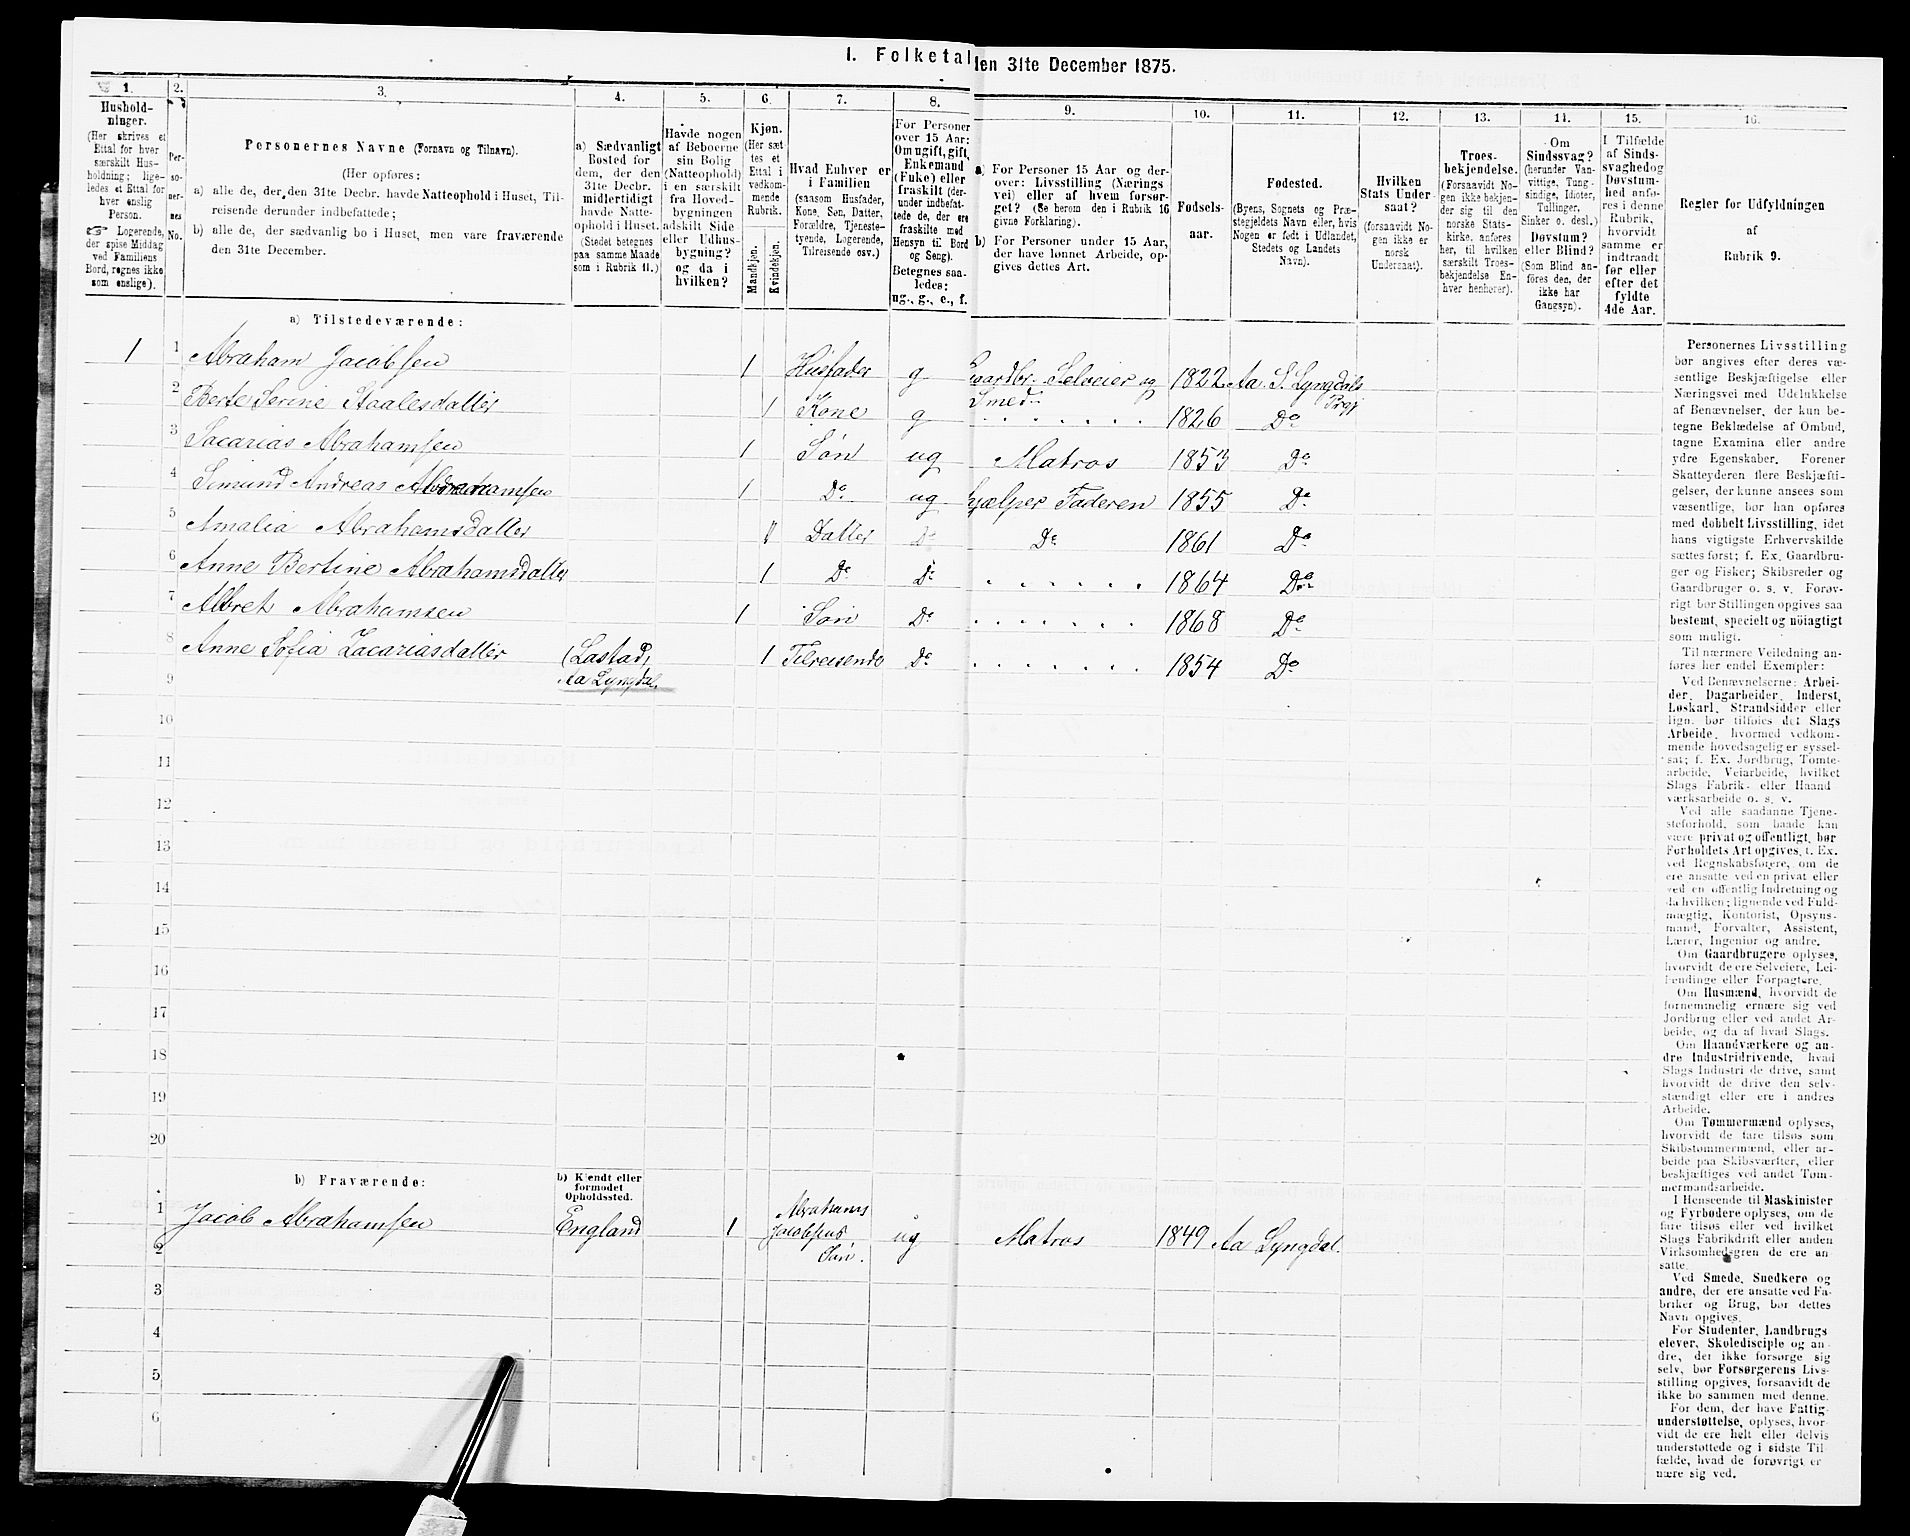 I. Folketal den 31te December 1875.
1. 2. 3. 4. 5. 6. 7. 8. 9. 10. 11. 12. 13. 14. 15. 16.
Hushold-
ninger.
(Her skrives et
Ettal for hver
særskilt Hus-
holdning; lige-
ledes et Ettal for
hver enslig
Person.
☞ Logerende,
der spise Middag
ved Familiens
Bord, regnes ikke
som enslige).
Per-
so-
ner-
nes
No.
Personernes Navne (Fornavn og Tilnavn).
(Her opføres:
a) alle de, der den 31te Decbr. havde Natteophold i Huset, Til-
reisende derunder indbefattede;
b) alle de, der sædvanlig bo i Huset, men vare fraværende
den 31te December.
a) Sædvanligt
Bosted for
dem, der den
31te Decbr.
midlertidigt
havde Natte-
ophold i Huset.
(Stedet betegnes
paa samme Maade
som i Rubrik 11.)
Havde nogen
af Beboerne
sin Bolig
(Natteophold)
i en særskilt
fra Hoved-
bygningen
adskilt Side
eller Udhus-
bygning?
og da i
hvilken?
Kjøn.
(Her sæt
tes et
Ettal i
vedkom-
mende
Rubrik.
Mandkjøn.
Kvindekjøn.
Hvad Enhver er
i Familien
(saasom Husfader,
Kone, Søn, Datter,
Forældre, Tjeneste-
tyende, Logerende,
Tilreisende osv.)
For Personer
over 15 Aar:
Om ugift, gift,
Enkemand
(Fuke) eller
fraskilt (der-
under indbefat-
tede de, der ere
fraskilte med
Hensyn til Bord
og Seng).
Betegnes saa-
ledes:
ug., g., e., f.
a) For Personer 15 Aar og der-
over: Livsstilling (Nærings
vei) eller af hvem forsør-
get? (Se herom den i Rubrik 16
givne Forklaring).
b) For Personer under 15 Aar,
der have lønnet Arbeide, op-
gives dettes Art.
Fødsels-
aar.
Fødested.
(Byens, Sognets og Præ-
stegjeldets Navn eller, hvis
Nogen er født i Udlandet,
Stedets og Landets
Navn).
Hvilken
Stats Under
saat?
(forsaavidt No-
gen ikke er
norsk
Undersaat).
Troes-
bekjendelse.
(Forsaavidt No-
gen ikke bekjen-
der sig til den
norske Stats-
kirke, anføres
her, til hvilken
særskilt Troes-
bekjendelse En-
hver henhører).
Om
Sindssvag?
(herunder Van-
vittige, Tung-
sindige, Idioter,
Tullinger,
Sinker o. desl.)
Døvstum?
eller Blind?
(Som Blind an-
føres den, der
ikke har
Gangsyn).
I Tilfælde
af Sinds-
svaghed og
Døvstum-
hed anfø-
res i denne
Rubrik,
hvorvidt
samme er
indtraadt
før eller
efter det
fyldte
4de Aar.
Regler for Udfyldningen
af
Rubrik 9.
a) Tilstedeværende:
1 1 Abraham Jacobsen 1 Husfader g Gaardbr. Selveier og Smed 1822 Aa S. Lyngdals Prgj
2 Berte Serine Staalesdatter 1 Kone g 1826 Do
3 Sacarias Abrahamsen 1 Søn ug Matros 1853 Do
4 Simund Andreas Abrahamsen 1 Do ug hjælper Faderen 1855 Do
5 Amalia Abrahamsdatter 1 Datter Do Do 1861 Do
6 Anne Bertine Abrahamsdatter 1 Do Do 1864 Do
7 Albret Abrahamsen 1 Søn Do 1868 Do
8 Anne Sofia Zacariasdatter (Lastad, Aa Lyngdal. 1 Tilreisende Do 1854 Do
9
10
11
12
13
14
15
16
17
18
19
20
b) Fraværende:
b) Kjendt eller
formodet
Opholdssted.
1 Jacob Abrahamsen England 1 Abrahams Jacobsens Søn. ug Matros 1849 Aa Lyngdal.
2
3
4
5
6
Personernes Livsstilling
bør angives efter deres væ-
sentlige Beskjæftigelse eller
Næringsvei med Udelukkelse
af Benævnelser, der kun be-
tegne Beklædelse af Ombud,
tagne Examina eller andre
ydre Egenskaber. Forener
Skatteyderen flere Beskjæfti-
gelser, der kunne ansees som
væsentlige, bør han opføres
med dobbelt Livsstilling, idet
hans vigtigste Erhvervskilde
sættes først; f. Ex. Gaardbru-
ger og Fisker; Skibsreder og
Gaardbruger o. s. v. Forøv-
rigt bør Stillingen opgives saa
bestemt, specielt og nöiagtigt
som muligt.
Til nærmere Veiledning an-
føres her endel Exempler:
Ved Benævnelserne: Arbei-
der, Dagarbeider, Inderst,
Løskarl, Strandsidder eller
lign. bør tilføies det Slags
Arbeide, hvormed vedkom-
mende hovedsagelig er syssel-
sat; f. Ex. Jordbrug, Tomte-
arbeide, Veiarbeide, hvilket
Slags Fabrik- eller Haand
værksarbeide o. s. v.
Ved alle saadanne Tjene-
steforhold, som baade kan
være privat og offentligt, bør
Forholdets Art opgives, f. Ex.
ved Regnskabsførere, om de
ere ansatte ved en privat eller
ved en offentlig Indretning og
da hvilken; lignende ved Fuld-
mægtig, Kontorist, Opsyns-
mand, Forvalter, Assistent,
Lærer, Ingeniør og andre.
Om Gaardbrugere oplyses,
hvorvidt de ere Selveiere, Lei-
lendinge eller Forpagtere.
Om Husmænd, hvorvidt de
fornemmelig ernære sig ved
Jordbrug eller ved andet Ar-
beide, og da af hvad Slags.
Om Haandværkere og an-
dre Industridrivende, hvad
Slags Industri de drive, samt
hvorvidt de drive den selv-
stændigt eller ere i andres
Arbeide.
Om Tømmermænd oplyses,
hvorvidt de fare tilsøs som
Skibstømmermænd, eller ar-
beide paa Skibsværfter, eller
beskjæftiges ved andet Tøm-
mermandsarbeide.
I Henseende til Maskinister
og Fyrbødere oplyses, om de
fare tilsøs eller ved hvilket
Slags Fabrikdrift eller anden
Virksomhedsgren de ere an-
satte.
Ved Smede, Snedkere og
andre, der ere ansatte ved Fa-
briker og Brug, bør dettes
Navn opgives.
For Studenter, Landbrugs
elever, Skoledisciple og an-
dre, der ikke forsørge sig
selv, bør Forsørgerens Livs-
stilling opgives, forsaavidt de
ikke bo sammen med denne.
For dem, der have Fattig
understøttelse, oplyses, hvor-
vidt de ere helt eller delvis
understøttede og i sidste Til-
fælde, hvad de forøvrigt er
nære sig ved.